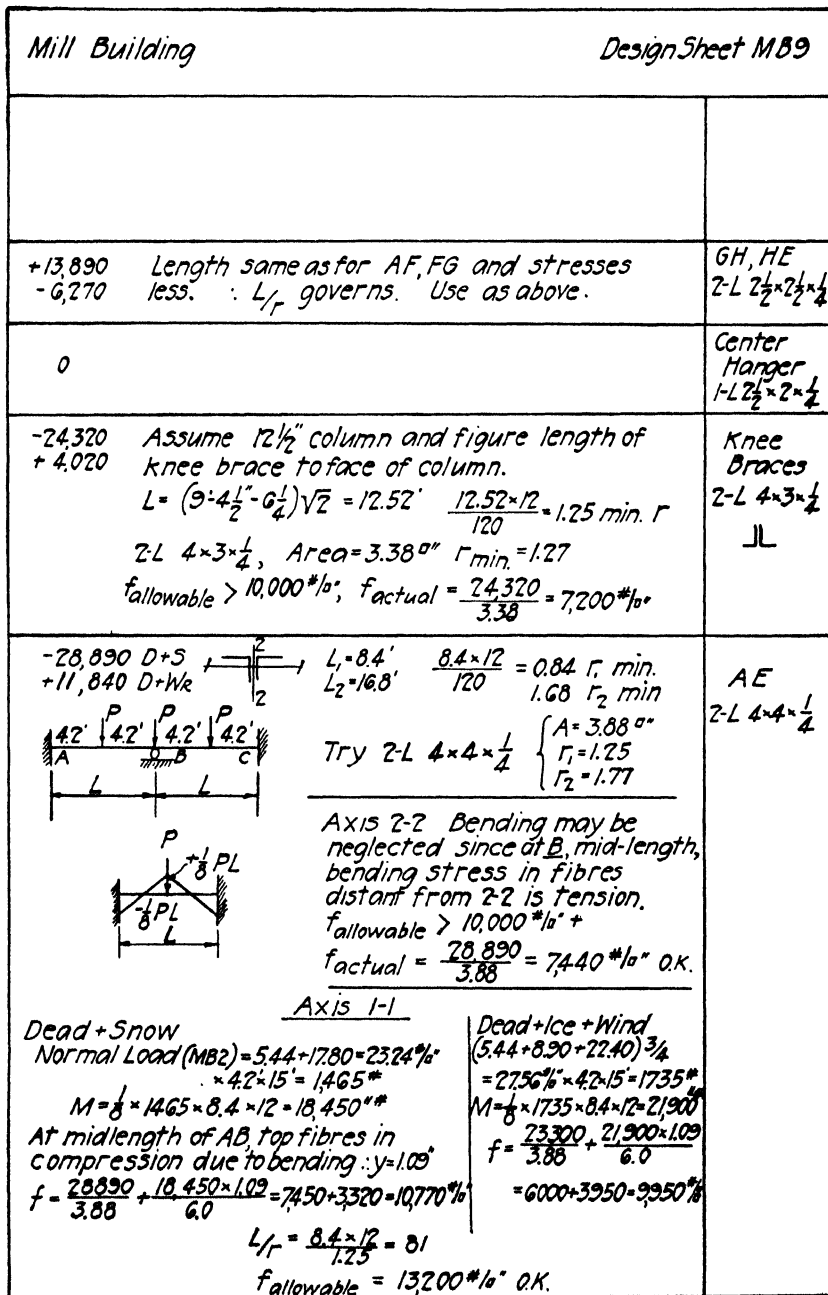 Mill Building Design Sheet MB9
+13,890 Length same as for AF, FG and stresses
-6,270 less. ∴ L/r governs. Use as above.
GH, HE
2-L 2½×2½×¼
0
Center
Hanger
1-L 2½×2×¼
-24,320 Assume 12½" column and figure length of
+4,020 knee brace to face of column.
L = (9'-4½"-6¼)√2 = 12.52' 12.52×12/120 = 1.25 min. r
2-L 4×3×¼, Area = 3.38□" r min. = 1.27
f allowable > 10,000 #/□", f actual = 24,320/3.38 = 7,200 #/□"
Knee
Braces
2-L 4×3×¼
-28,890 D+S
+11,840 D+WR
2
2
L₁=8.4' 8.4×12/120 = 0.84 r, min.
L₂=16.8' 1.68 r₂ min
AE
2-L 4×4×¼
P P P
4.2' 4.2' 4.2' 4.2'
A B C
L L
Try 2-L 4×4×¼ { A = 3.88□"
r₁ = 1.25
r₂ = 1.77
P
+⅛ PL
-⅛ PL
L
Axis 2-2 Bending may be
neglected since at B, mid-length,
bending stress in fibres
distant from 2-2 is tension.
f allowable > 10,000 #/□" +
f actual = 28,890/3.88 = 7,440 #/□" O.K.
Axis 1-1
Dead + Snow
Normal Load (MB2) = 5.44+17.80 = 23.24 #/□"
×4.2'×15' = 1,465#
M = ⅛×1465×8.4×12 = 18,450"#
At midlength of AB, top fibres in
compression due to bending ∴ y=1.09"
f = 28890/3.88 + 18,450×1.09/6.0 = 7,450+3,320 = 10,770 #/□"
Dead+Ice+Wind
(5.44+8.90+22.40) ¾
= 27.56 #/□' ×4.2×15' = 1735#
M = ⅛×1735×8.4×12 = 21,900"#
f = 23300/3.88 + 21,900×1.09/6.0
= 6000+3950 = 9,950 #/□"
L/r = 8.4×12/1.25 = 81
f allowable = 13,200 #/□" O.K.